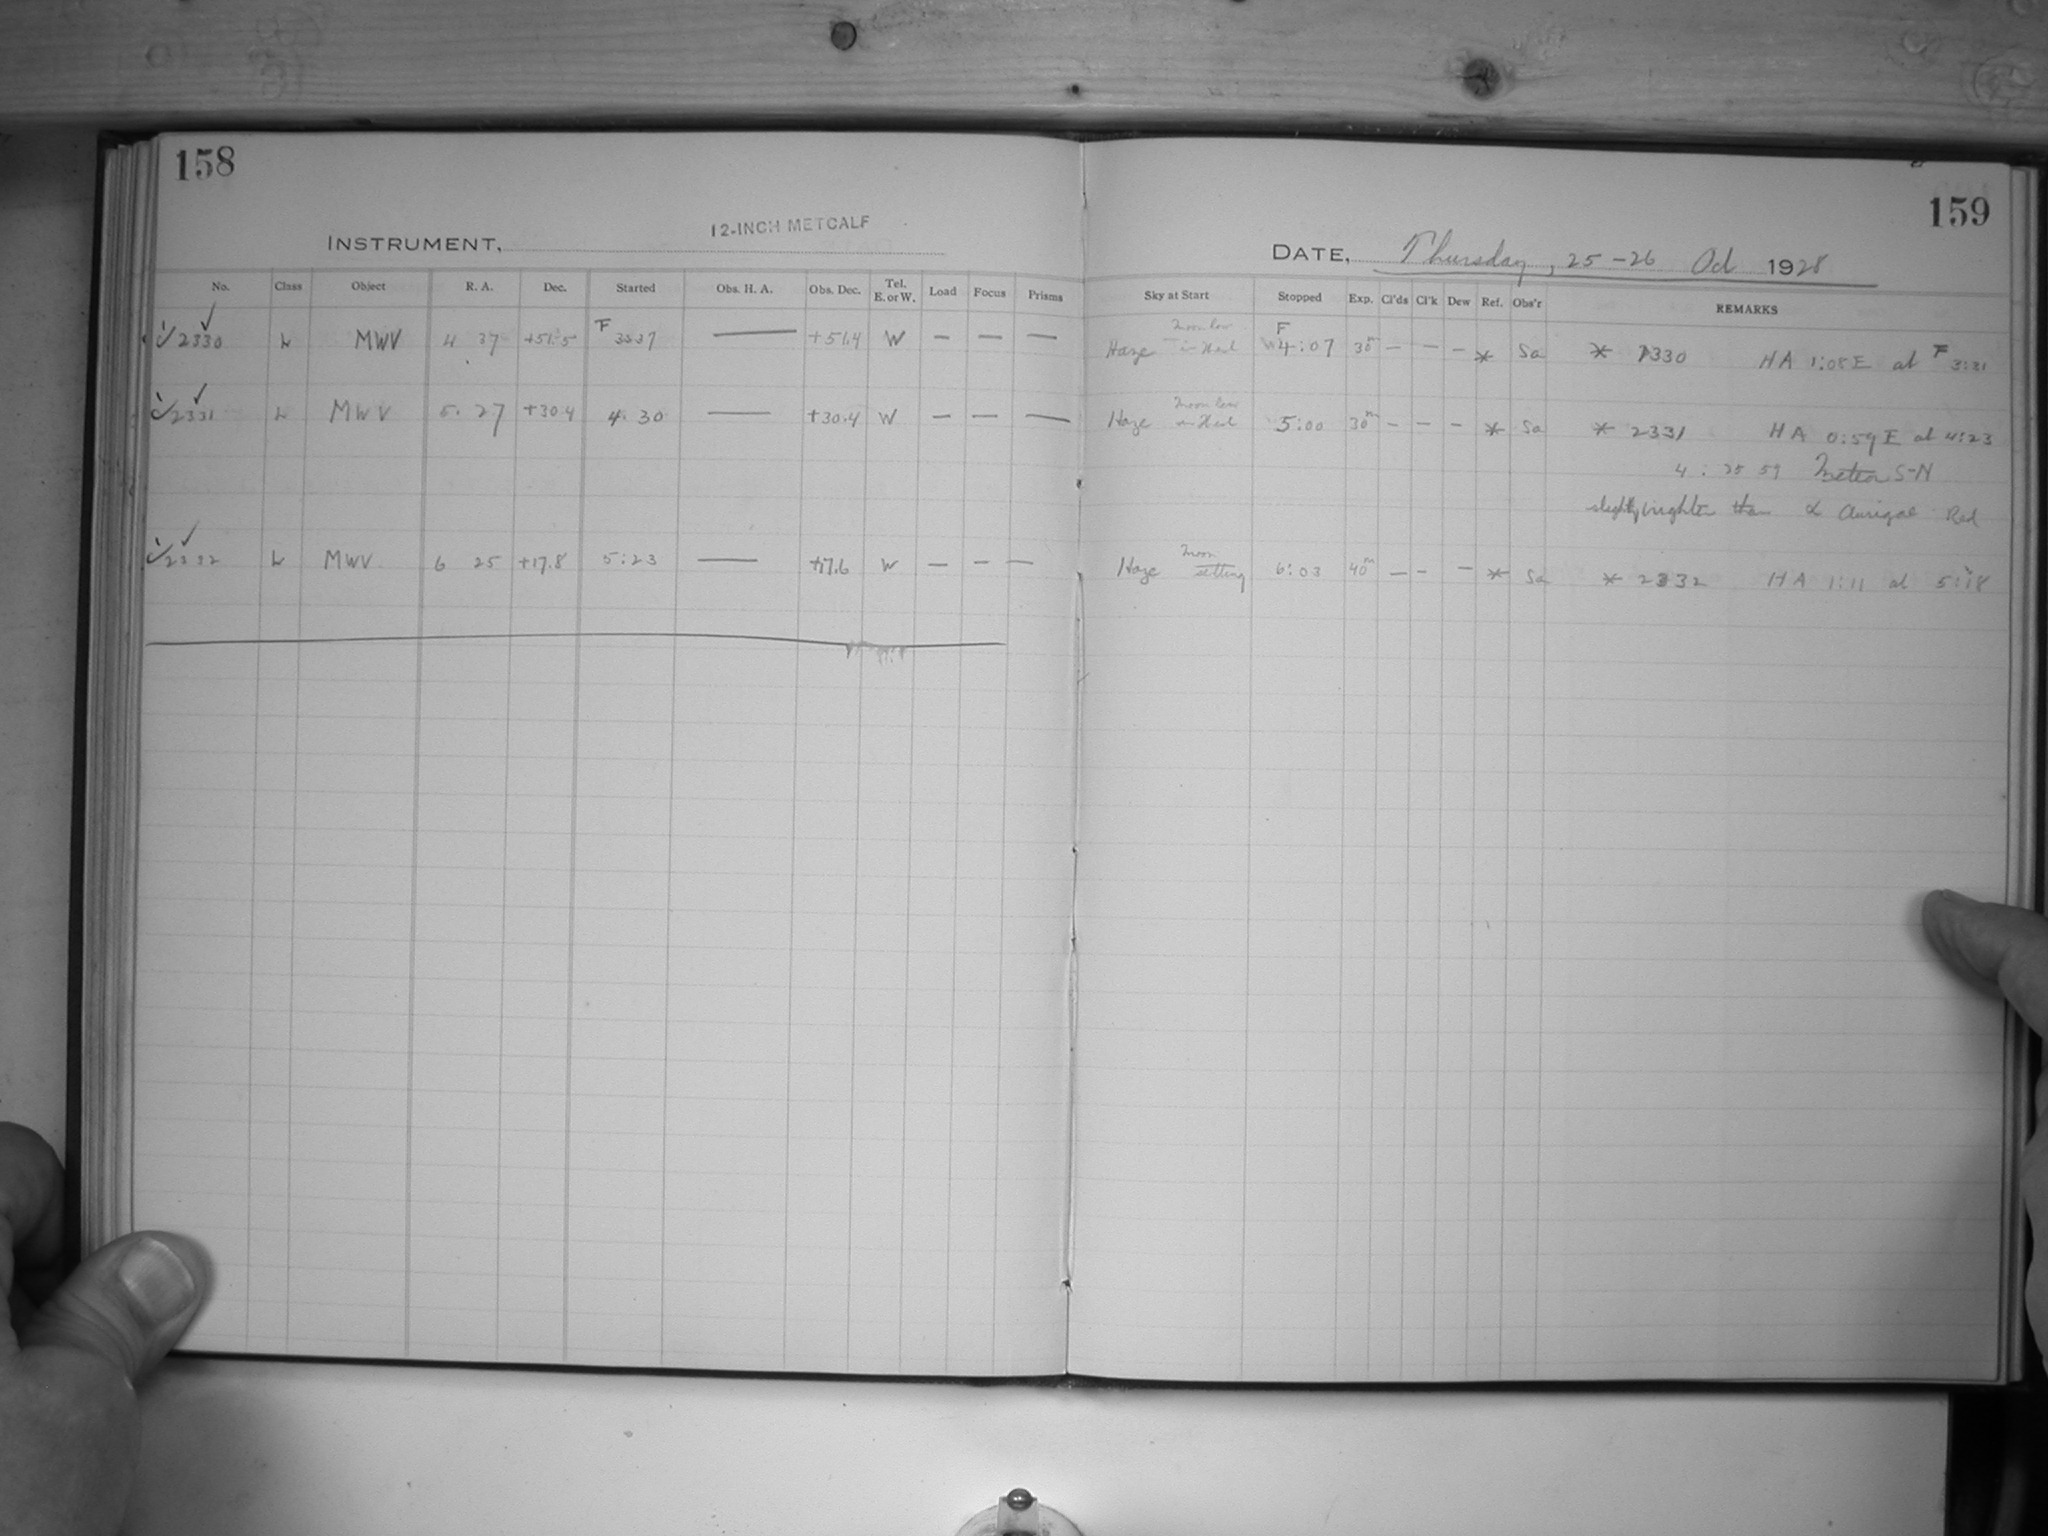 158
INSTRUMENT, 12-INCH METCALF
No. Class Object R. A. Dec. Started Obs. H. A. Obs. Dec. Tel. E. or W. Load Focus Prisms
2330 L MWV 4 37 +51.5 F 3:37 — +51.4 W — — —
2331 L MWV 5 27 +30.4 4 30 — +30.4 W — — —
2332 L MWV 6 25 +17.8 5:23 — +17.6 W — — —
159
DATE, Thursday, 25-26 Oct 1928
Sky at Start Stopped Exp. Cl'ds Cl'k Dew Ref. Obs'r REMARKS
Haze Moon low F 4:07 30m — — — * Sa * 2330 HA 1:08 E at F 3:31
Haze Moon low 5:00 30m — — — * Sa * 2331 HA 0:59 E at 4:23
4: 59 Meteor S-N
slightly brighter than α Aurigae Red
Haze Moon setting 6:03 40m — — — * Sa * 2332 HA 1:11 at 5:18